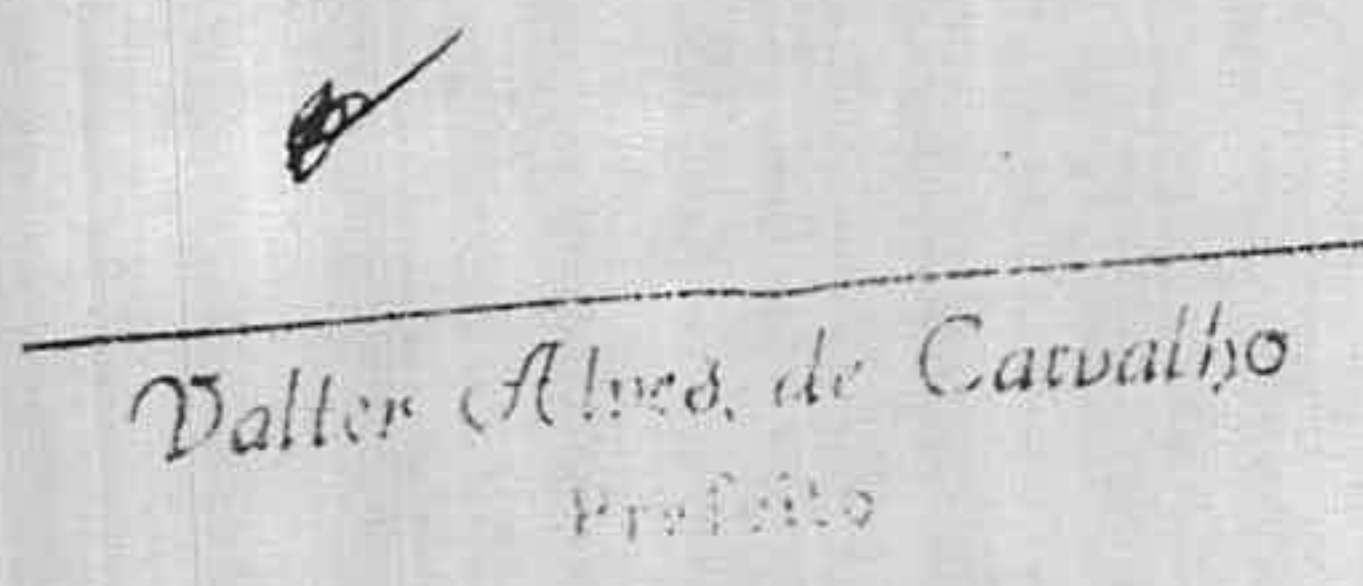 Valter Alves de Carvalho
Prefeito